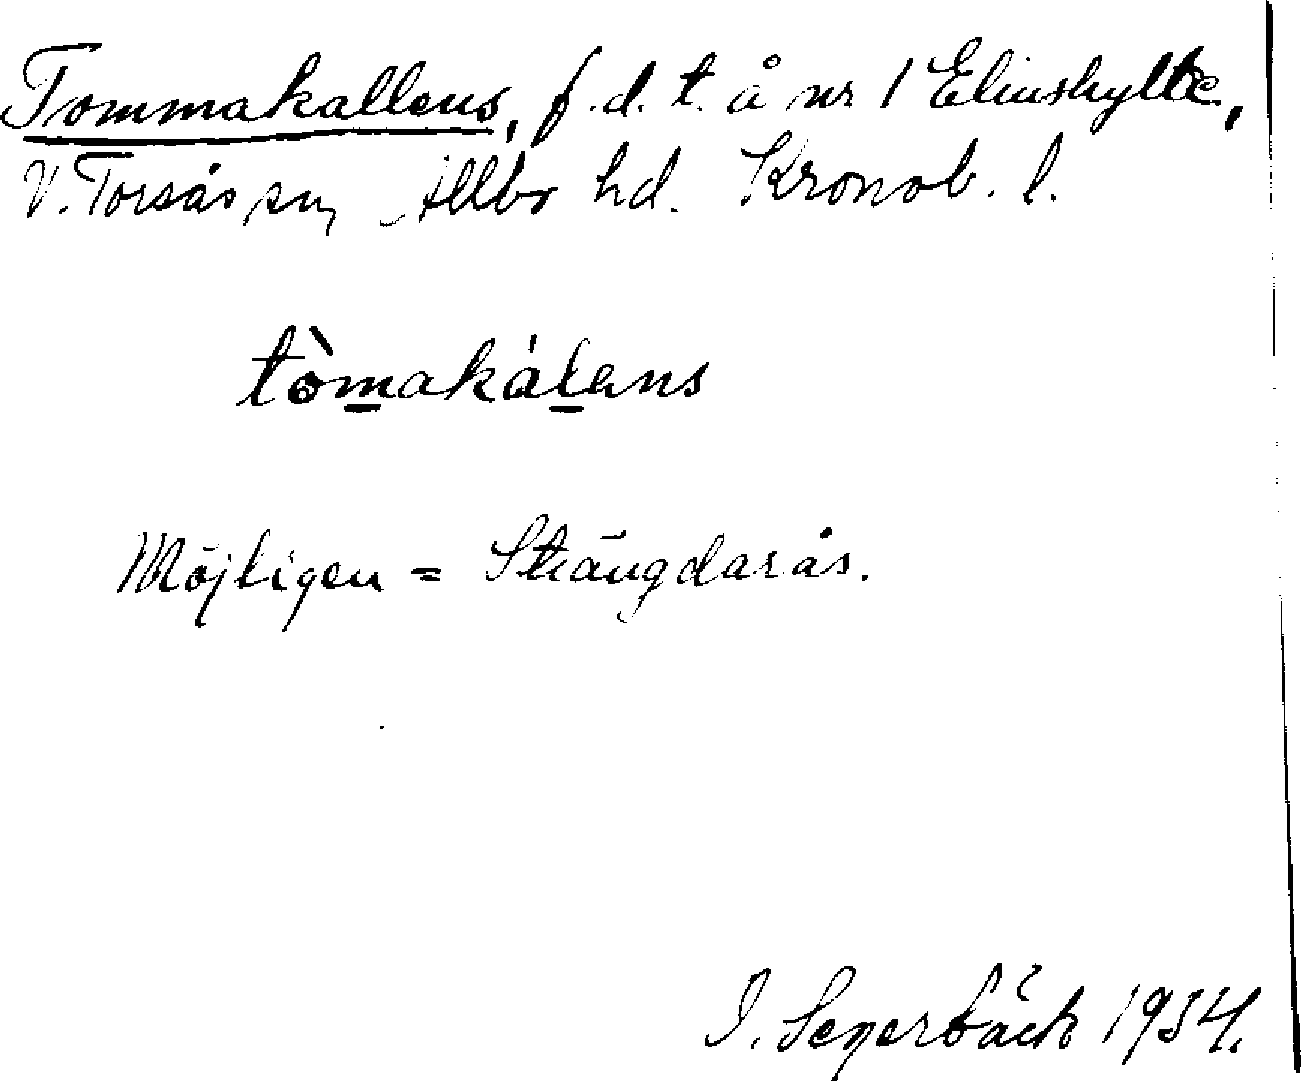 Tommakallens, f.d. t. å nr 1 Elinshylte,
V. Torsås sn, Allbo hd. Kronob. l.
tòmakálens
Möjligen = Stängdarås.
I. Segerbäck 1934.